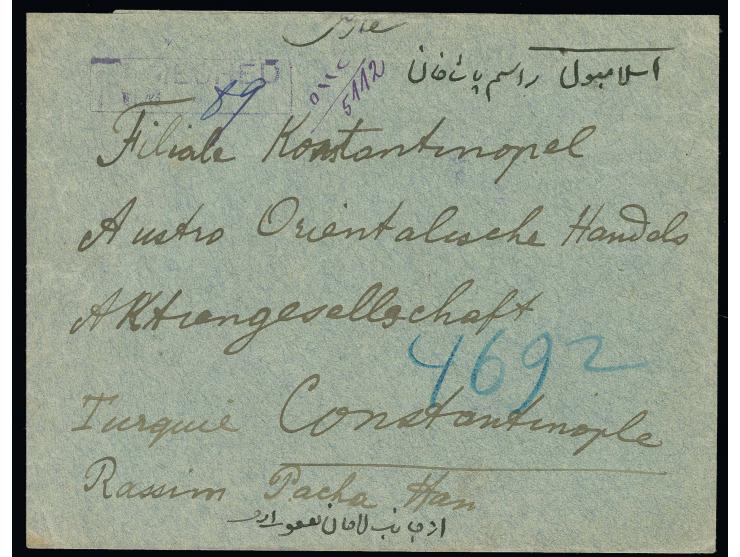 اسلامبول راسم پاشا خان
89
5112
Filiale Konstantinopel
Austro Orientalische Handels
Aktiengesellschaft
4692
Turquie Constantinople
Rassim Pacha Han
از جانب